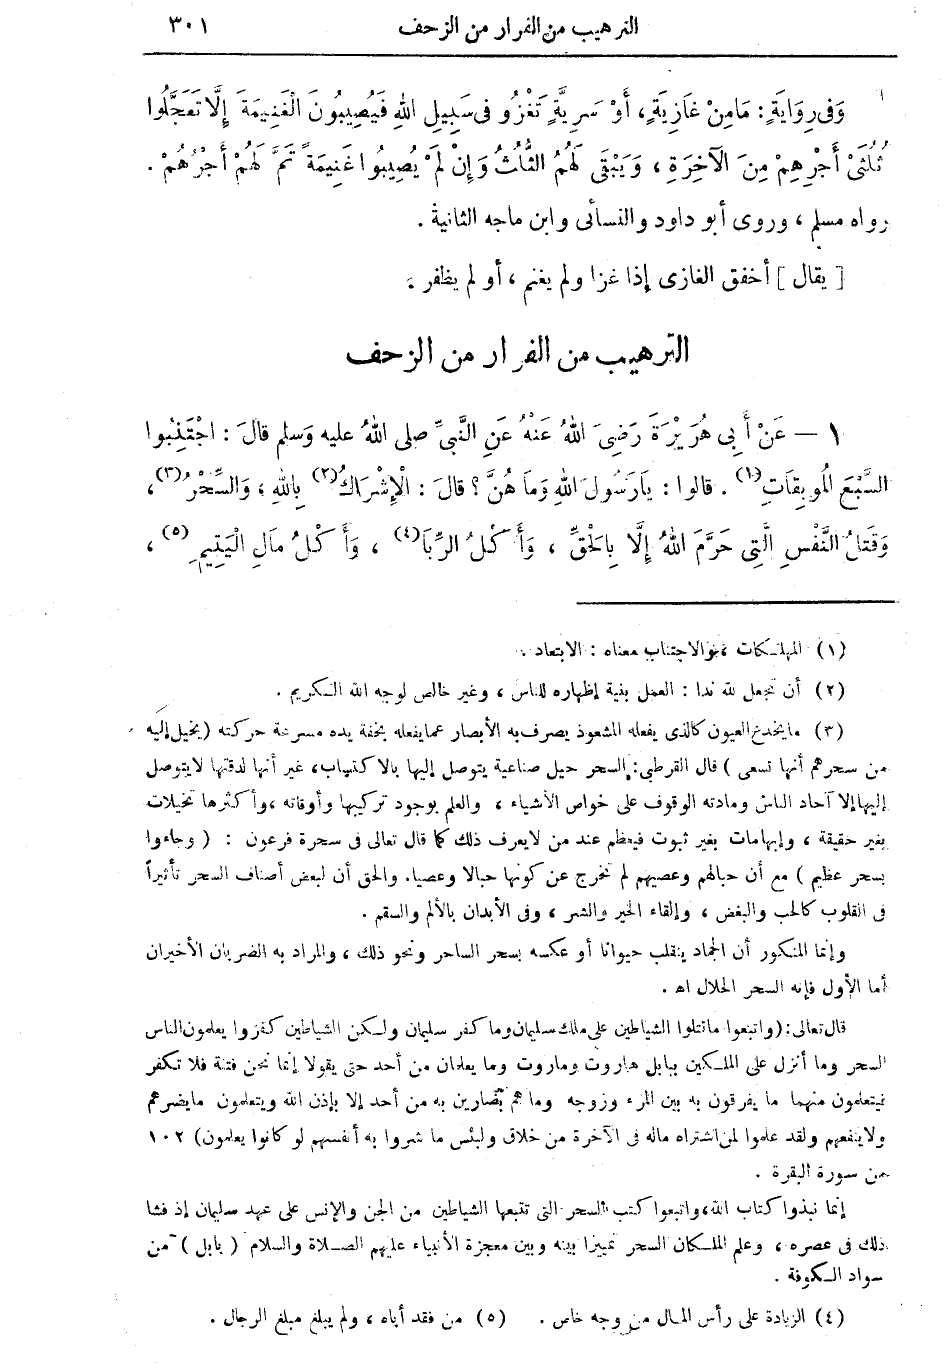 الترهيب من الفرار من الزحف ٣٠١
وَفِى رِوَايَةٍ : مَا مِنْ غَازِيَةٍ، أَوْ سَرِيَّةٍ تَغْزُو فِى سَبِيلِ اللهِ فَيُصِيبُونَ الْغَنِيمَةَ إِلَّا تَعَجَّلُوا
ثُلُثَىْ أَجْرِهِمْ مِنَ الْآخِرَةِ ، وَيَبْقَى لَهُمُ الثُّلُثُ وَإِنْ لَمْ يُصِيبُوا غَنِيمَةً تَمَّ لَهُمْ أَجْرُهُمْ .
رواه مسلم ، وروى أبو داود والنسائى وابن ماجه الثانية .
[ يقال ] أخفق الغازى إذا غزا ولم يغنم ، أو لم يظفر .
الترهيب من الفرار من الزحف
١ — عَنْ أَبِى هُرَيْرَةَ رَضِىَ اللهُ عَنْهُ عَنِ النَّبِىِّ صلى اللهُ عليه وَسلم قالَ : اجْتَنِبُوا
السَّبْعَ الْمُوبِقَاتِ(١) . قالوا : يَارَسُولَ اللهِ وَمَا هُنَّ ؟ قالَ : الْإِشْرَاكُ(٢) بِاللهِ ، وَالسِّحْرُ(٣) ،
وَقَتْلُ النَّفْسِ الَّتِى حَرَّمَ اللهُ إِلَّا بِالْحَقِّ ، وَأَكْلُ الرِّبَا(٤) ، وَأَكْلُ مَالِ الْيَتِيمِ(٥) ،
(١) المهلكات ، والاجتناب معناه : الابتعاد .
(٢) أن تجعل لله ندا : العمل بنية إظهاره للناس ، وغير خالص لوجه الله الكريم .
(٣) ما يخدع العيون كالذى يفعله المشعوذ يصرف به الأبصار عما يفعله بخفة يده مسرعة حركته (يخيل إليه
من سحرهم أنها تسعى ) قال القرطبى: السحر حيل صناعية يتوصل إليها بالاكتساب، غير أنها لدقتها لايتوصل
إليها إلا آحاد الناس ومادته الوقوف على خواص الأشياء ، والعلم بوجود تركيبها وأوقاته ، وأكثرها تخيلات
بغير حقيقة ، وإيهامات بغير ثبوت فيعظم عند من لايعرف ذلك كما قال تعالى فى سحرة فرعون : ( وجاءوا
بسحر عظيم ) مع أن حبالهم وعصيهم لم تخرج عن كونها حبالا وعصيا. والحق أن لبعض أصناف السحر تأثيراً
فى القلوب كالحب والبغض ، وإلقاء الخير والشر ، وفى الأبدان بالألم والسقم .
وإنما المنكور أن الجماد ينقلب حيوانا أو عكسه بسحر الساحر ونحو ذلك ، والمراد به الضربان الأخيران
أما الأول فإنه السحر الحلال اه .
قال تعالى : (واتبعوا ماتتلوا الشياطين على ملك سليمان وما كفر سليمان ولكن الشياطين كفروا يعلمون الناس
السحر وما أنزل على الملكين ببابل هاروت وماروت وما يعلمان من أحد حتى يقولا إنما نحن فتنة فلا تكفر
فيتعلمون منهما ما يفرقون به بين المرء وزوجه وما هم بضارين به من أحد إلا بإذن الله ويتعلمون مايضرهم
ولاينفعهم ولقد علموا لمن اشتراه ماله فى الآخرة من خلاق ولبئس ما شروا به أنفسهم لو كانوا يعلمون) ١٠٢
من سورة البقرة .
إنما نبذوا كتاب الله، واتبعوا كتب السحر التى تتبعها الشياطين من الجن والإنس على عهد سليمان إذ فشا
ذلك فى عصره ، وعلم الملكان السحر تمييزا بينه وبين معجزة الأنبياء عليهم الصلاة والسلام ( بابل ) من
سواد الكوفة .
(٤) الزيادة على رأس المال من وجه خاص . (٥) من فقد أباه ، ولم يبلغ مبلغ الرجال .